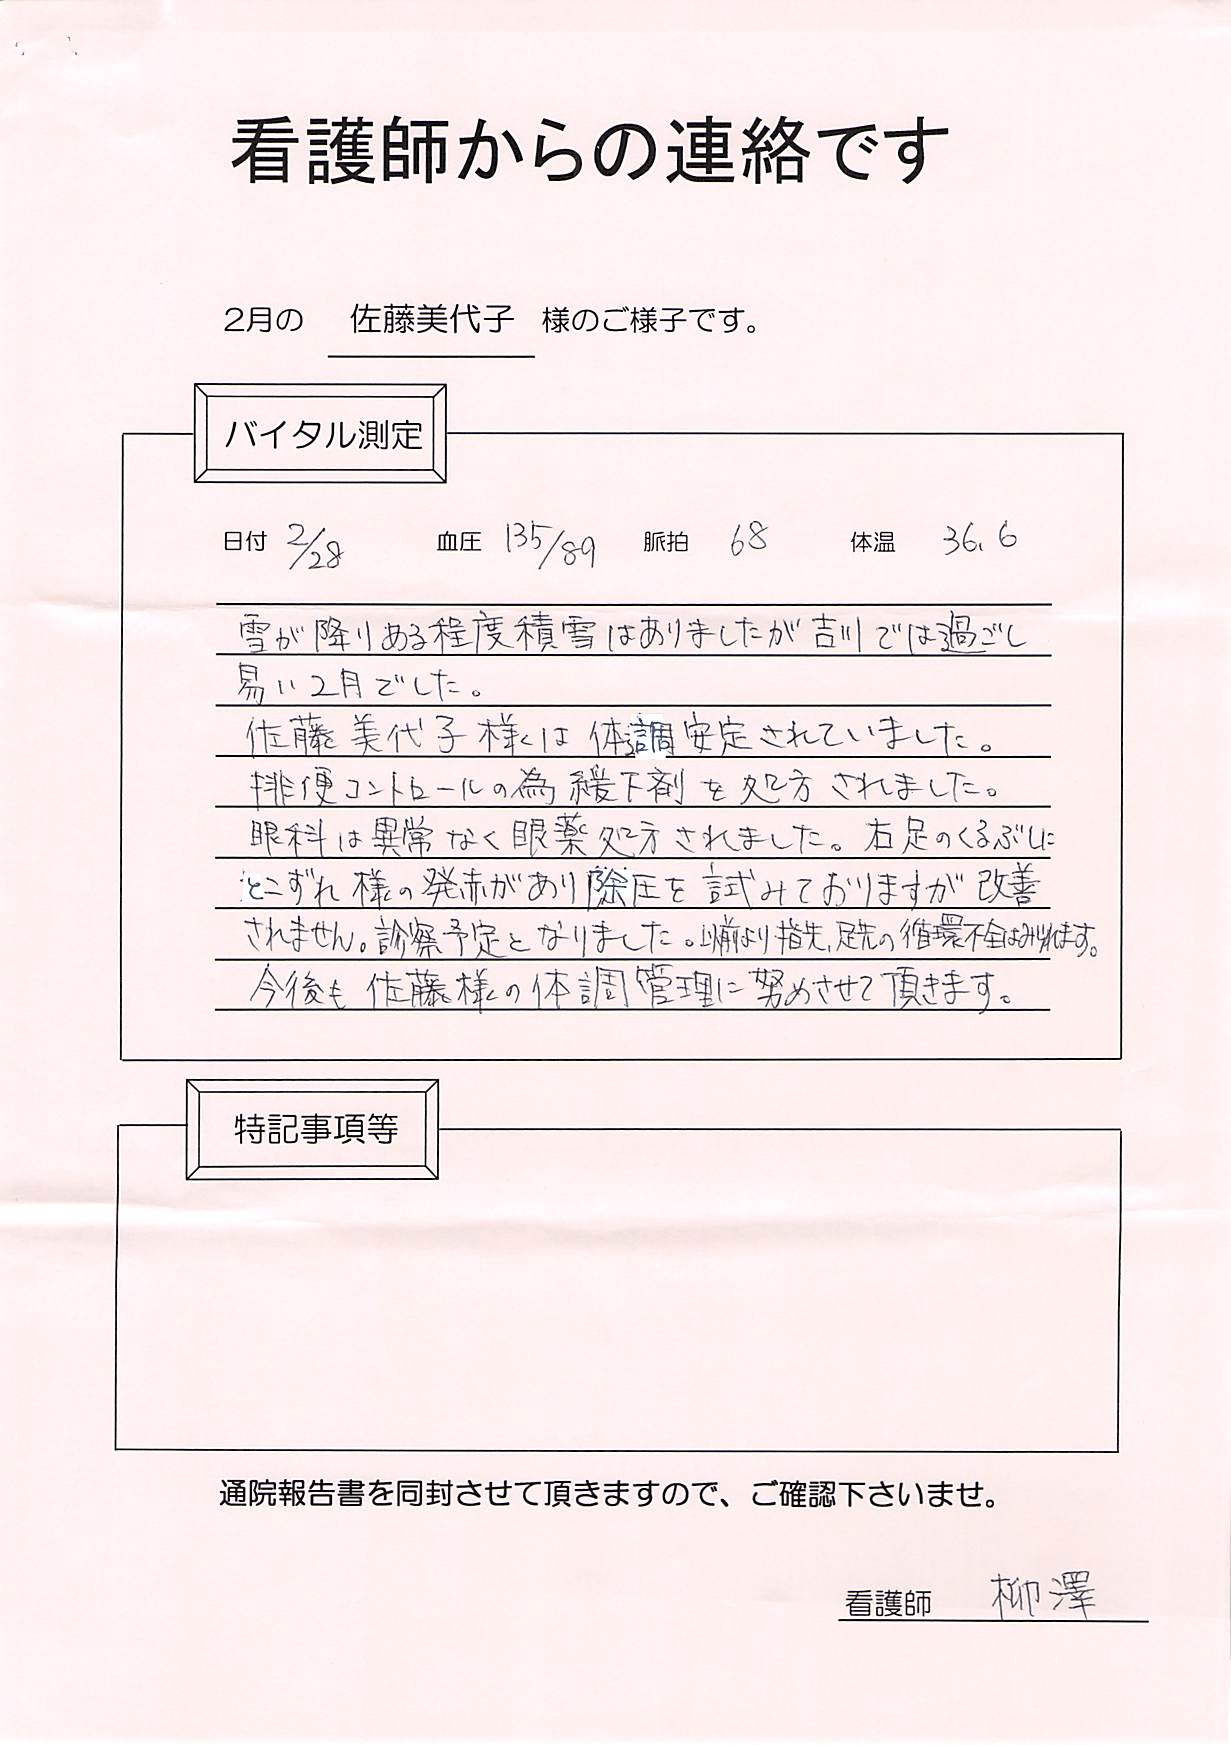 看護師からの連絡です
2月の 佐藤美代子 様のご様子です。
バイタル測定
日付 2/28 血圧 135/89 脈拍 68 体温 36.6
雪が降りある程度積雪はありましたが吉川では過ごし
易い2月でした。
佐藤美代子様は体調安定されていました。
排便コントロールの為緩下剤を処方されました。
眼科は異常なく眼薬処方されました。右足のくるぶしに
とこずれ様の発赤があり除圧を試みておりますが改善
されません。診察予定となりました。以前より指先、足先の循環不全はみられます。
今後も佐藤様の体調管理に努めさせて頂きます。
特記事項等
通院報告書を同封させて頂きますので、ご確認下さいませ。
看護師 柳澤